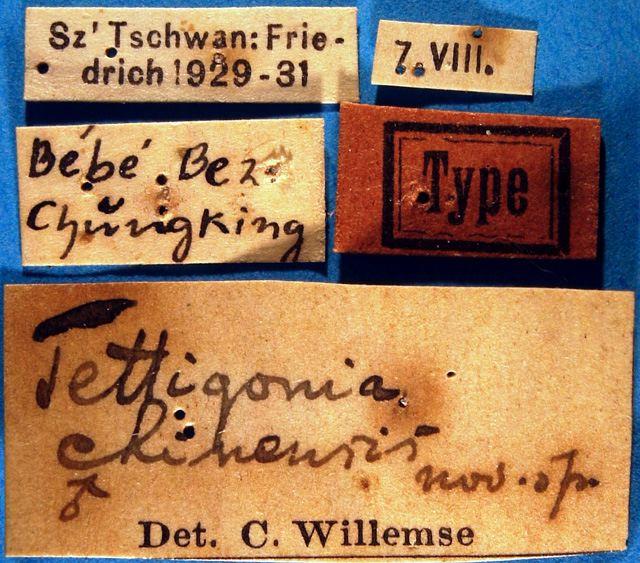 Sz' Tschwan: Frie-
drich 1929-31
7. VIII.
Bébé Bez.
Chŭngking
Type
Tettigonia
chinensis
♂ nov. sp.
Det. C. Willemse